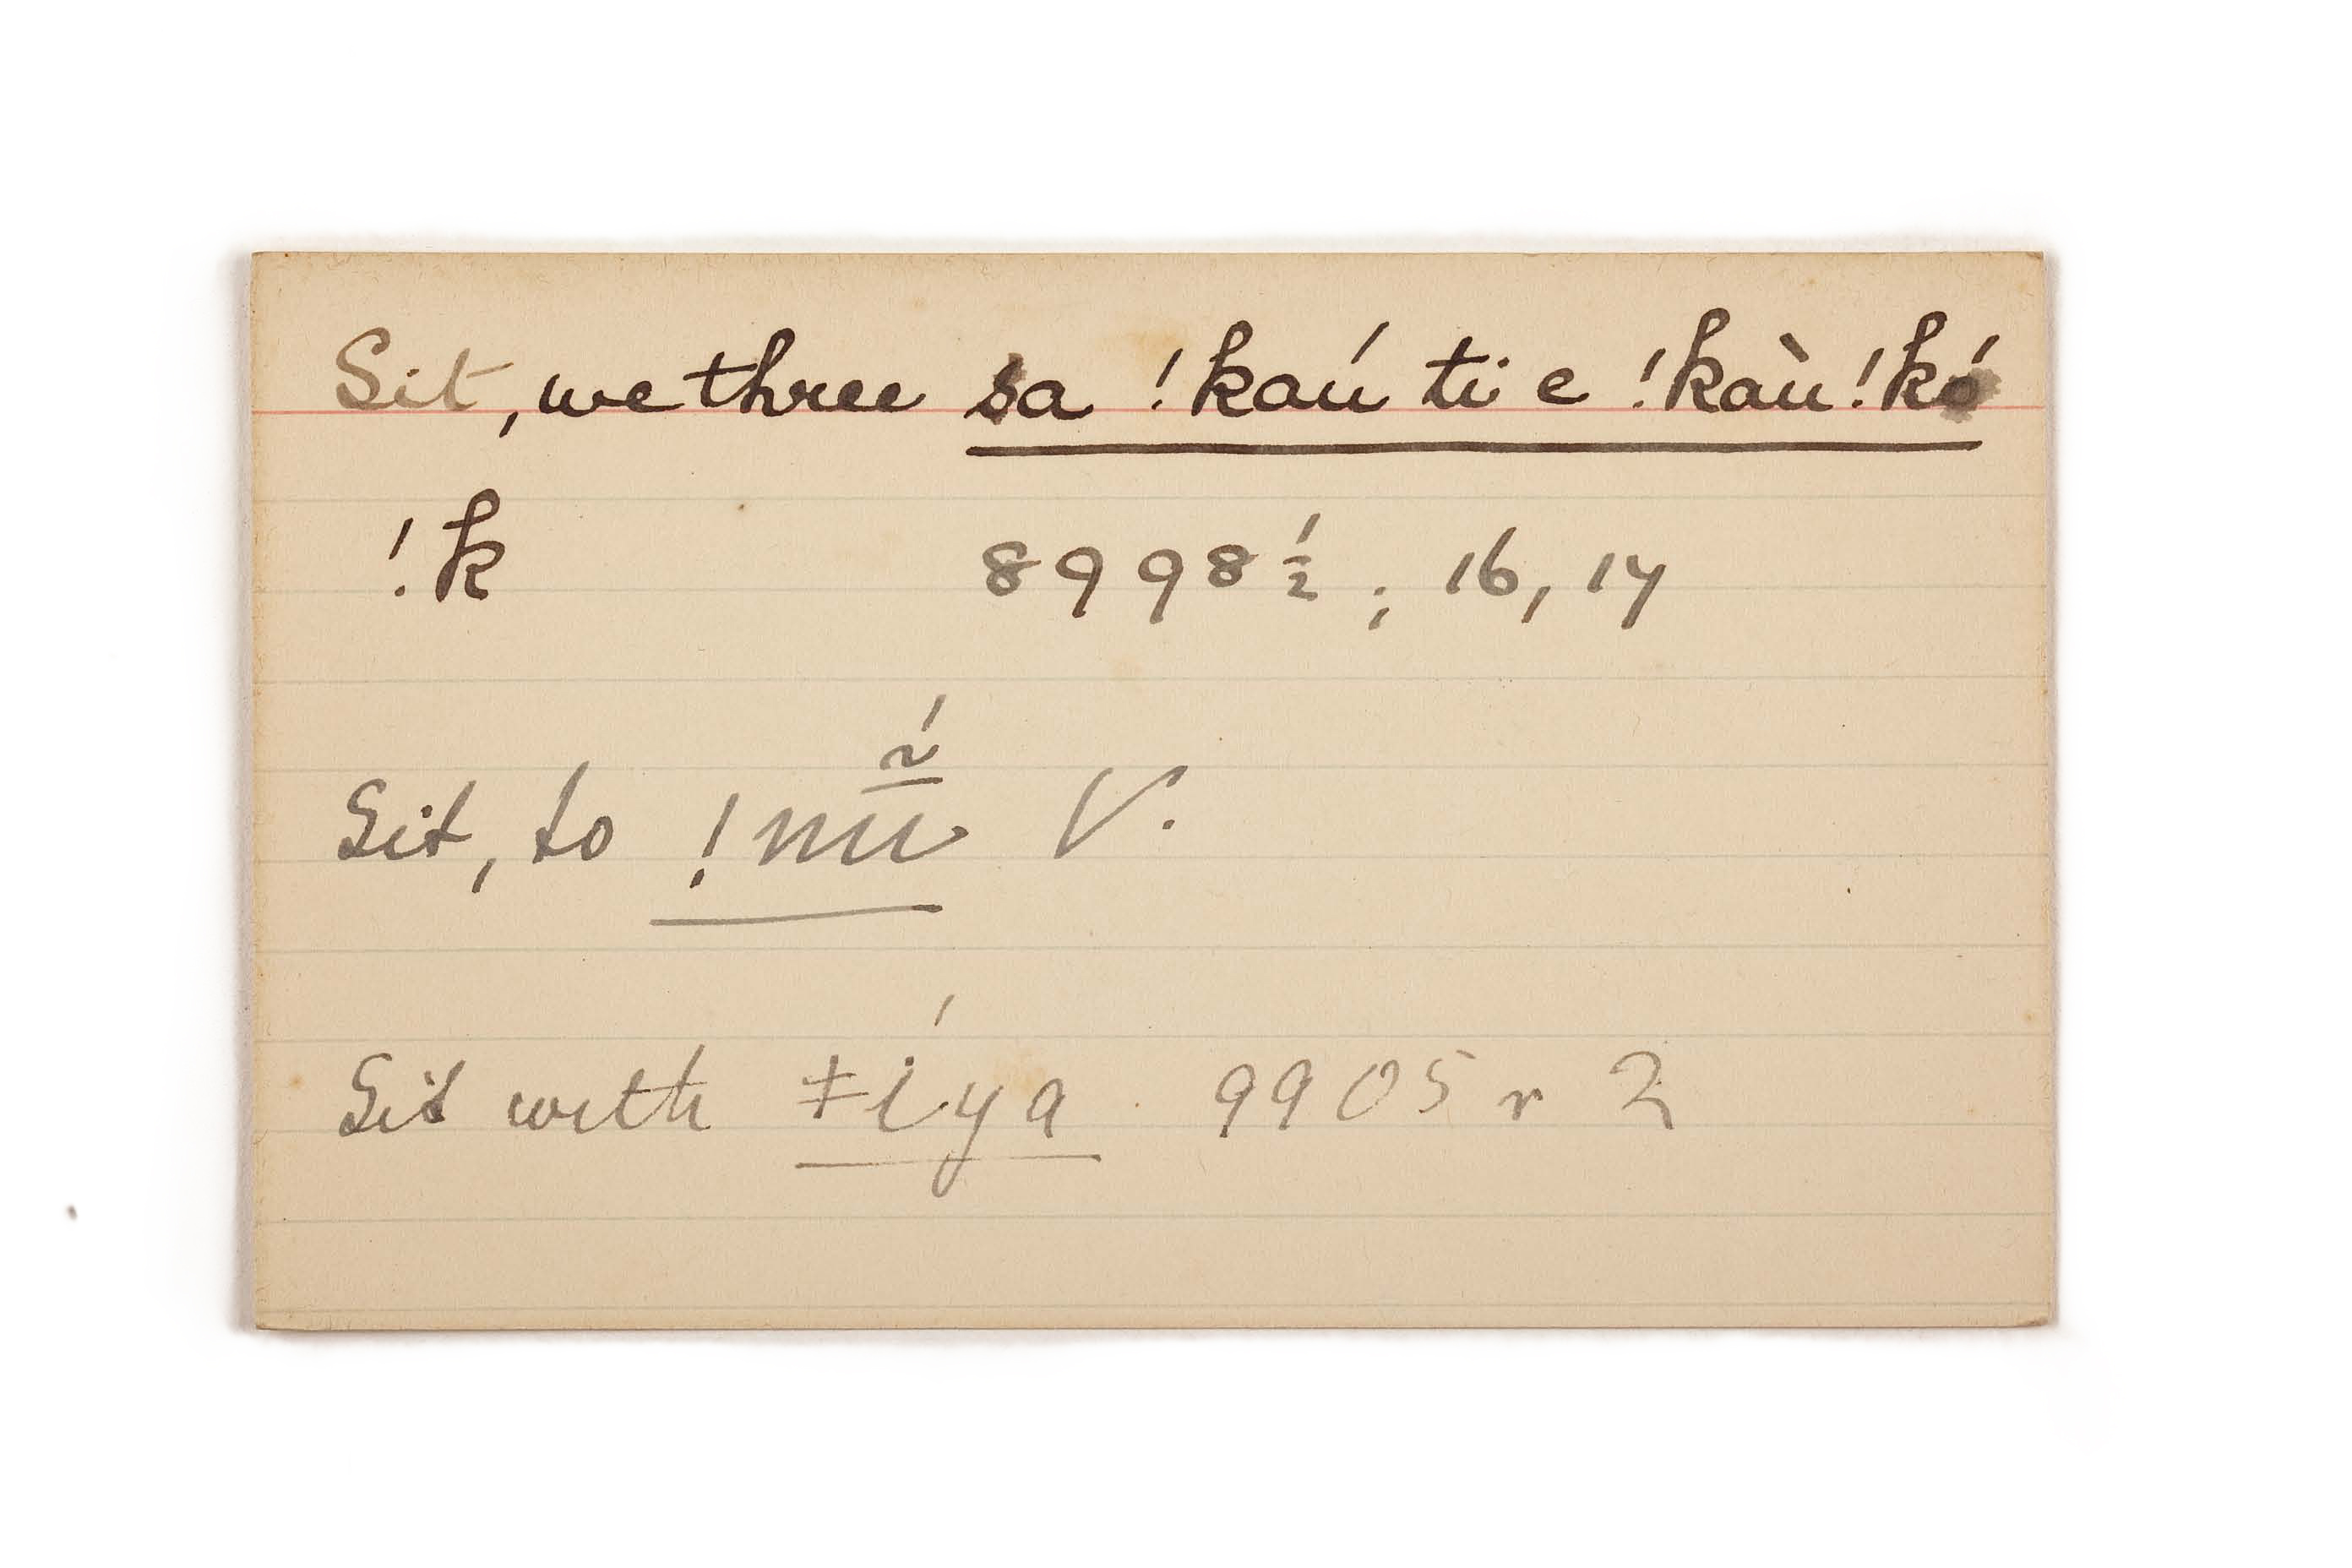 Sit, we three sa !kaú ti e !kaù !kó
!k 8998½; 16, 17
Sit, to !nū̃́ V.
Sit with ǂíya 9905 r 2